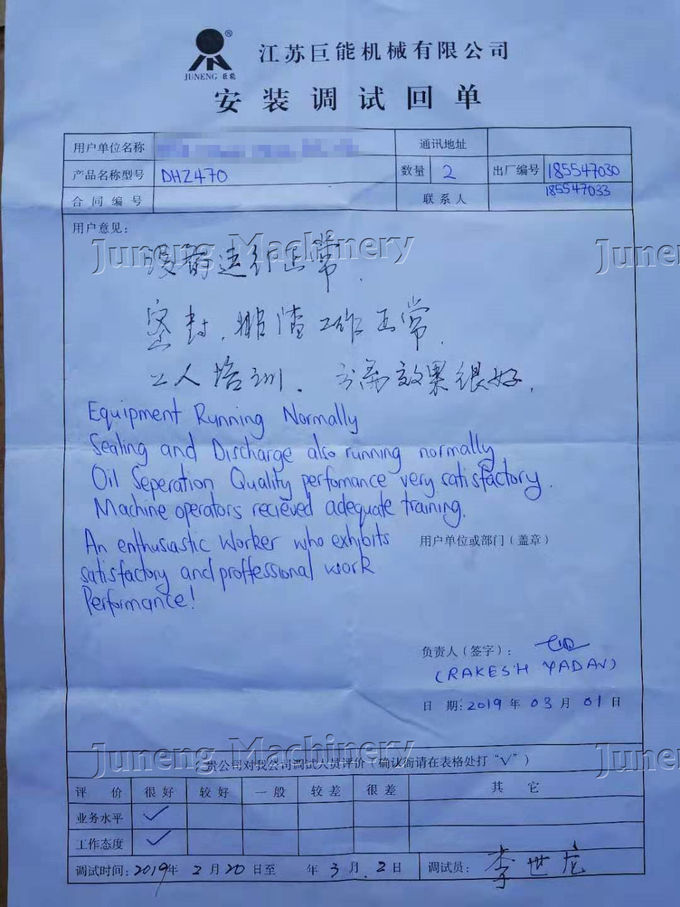 JUNENG 巨能 ®
江苏巨能机械有限公司
安装调试回单
用户单位名称 通讯地址
产品名称型号 DHZ470 数量 2 出厂编号 185547030
185547033
合同编号 联系人
用户意见：
Juneng Machinery
Juneng
设备运行正常.
密封、排渣工作正常.
工人培训、分离效果很好.
Equipment Running Normally
Sealing and Discharge also running normally
Oil Seperation Quality perfomance very satisfactory.
Machine operators recieved adequate training.
An enthusiastic worker who exhybits
satisfactory and proffessional work
Performance!
用户单位或部门（盖章）
负责人（签字）：
(RAKESH YADAV)
日 期：2019年 03月 01日
Juneng Machinery
Juneng
贵公司对我公司调试人员评价（确认后请在表格处打“√”）
评 价 很好 较好 一般 较差 很差 其 它
业务水平 ✓
工作态度 ✓
调试时间：2019年 2月 20日至 年 3月 2日 调试员：李世龙